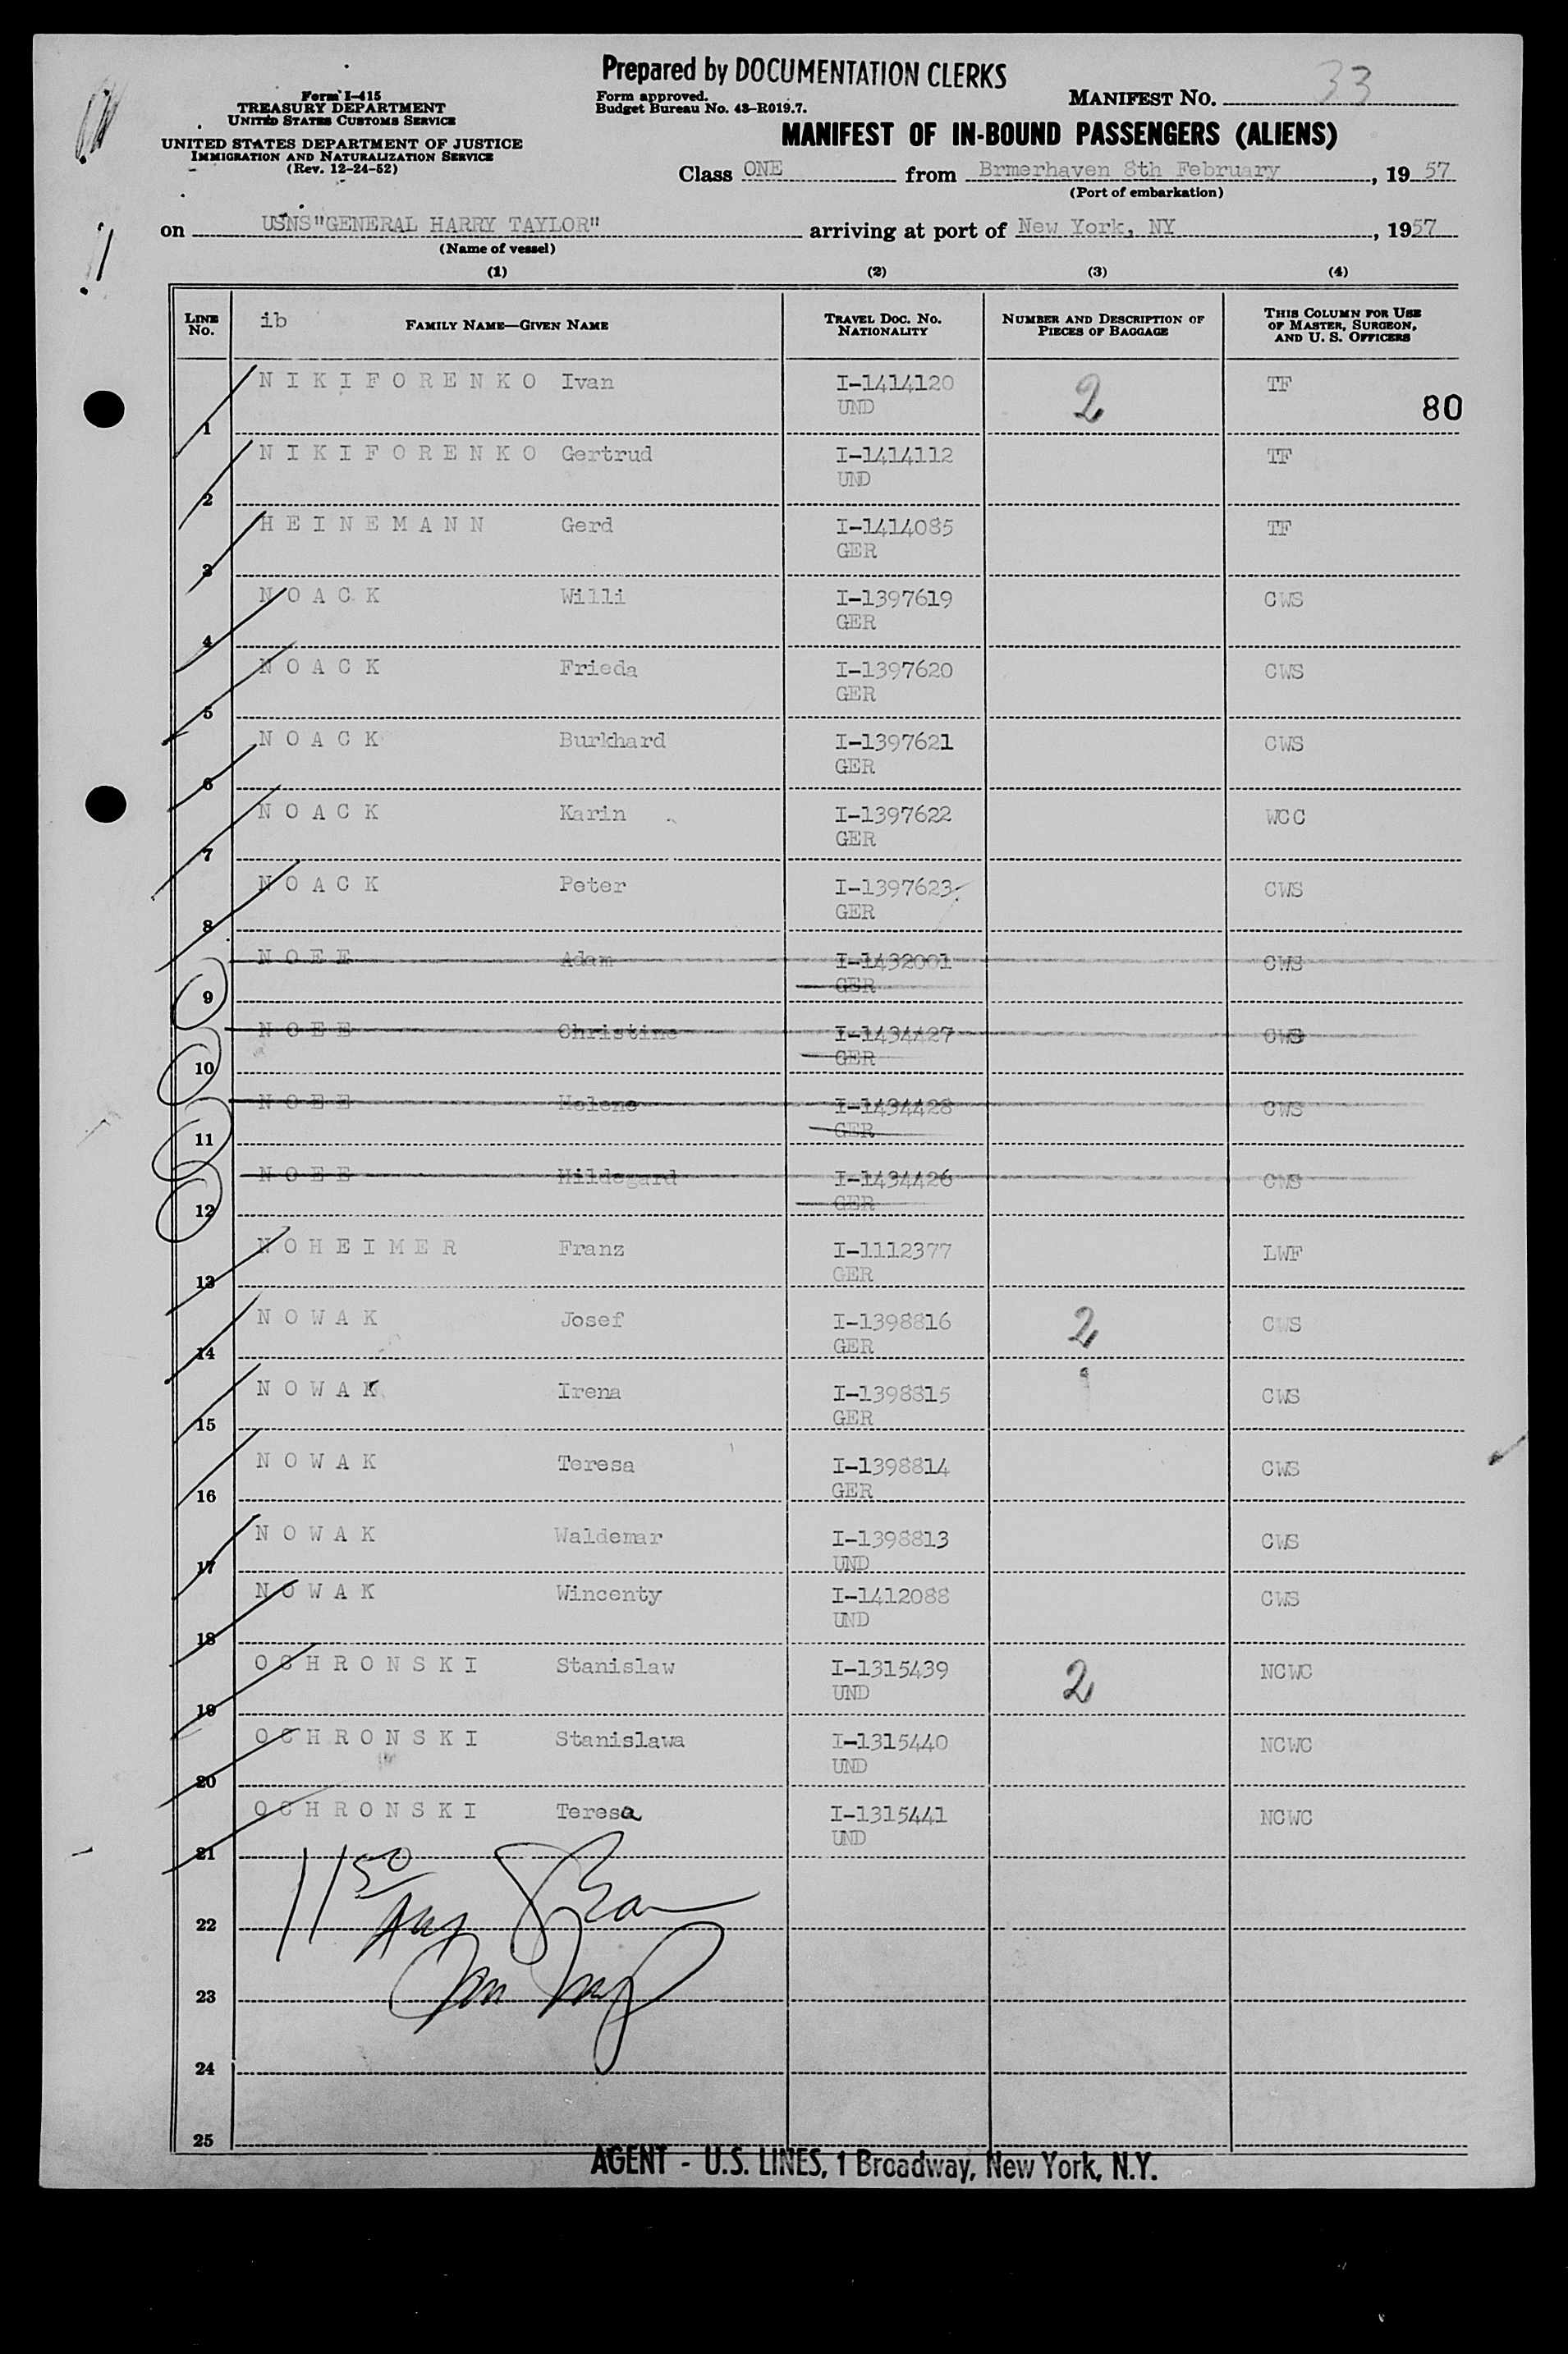 Prepared by DOCUMENTATION CLERKS
Form I-415
TREASURY DEPARTMENT
UNITED STATES CUSTOMS SERVICE
UNITED STATES DEPARTMENT OF JUSTICE
IMMIGRATION AND NATURALIZATION SERVICE
(Rev. 12-24-52)
Form approved.
Budget Bureau No. 43-R019.7.
MANIFEST NO. 33
MANIFEST OF IN-BOUND PASSENGERS (ALIENS)
Class ONE from Brmerhaven 8th February, 19 57
(Port of embarkation)
on USNS"GENERAL HARRY TAYLOR" arriving at port of New York, NY, 1957
(Name of vessel)
(1) (2) (3) (4)
LINE No. ib FAMILY NAME—GIVEN NAME TRAVEL DOC. NO. NATIONALITY NUMBER AND DESCRIPTION OF PIECES OF BAGGAGE THIS COLUMN FOR USE OF MASTER, SURGEON, AND U. S. OFFICERS
1 NIKIFORENKO Ivan I-1414120 UND 2 TF 80
2 NIKIFORENKO Gertrud I-1414112 UND TF
3 HEINEMANN Gerd I-1414085 GER TF
4 NOACK Willi I-1397619 GER CWS
5 NOACK Frieda I-1397620 GER CWS
6 NOACK Burkhard I-1397621 GER CWS
7 NOACK Karin I-1397622 GER WCC
8 NOACK Peter I-1397623 GER CWS
9 NOEE Adam I-1432001 GER CWS
10 NOEE Christine I-1434427 GER CWS
11 NOEE Helene I-1434428 GER CWS
12 NOEE Hildegard I-1434426 GER CWS
13 NOHEIMER Franz I-1112377 GER LWF
14 NOWAK Josef I-1398816 GER 2 CWS
15 NOWAK Irena I-1398815 GER CWS
16 NOWAK Teresa I-1398814 GER CWS
17 NOWAK Waldemar I-1398813 UND CWS
18 NOWAK Wincenty I-1412088 UND CWS
19 OCHRONSKI Stanislaw I-1315439 UND 2 NCWC
20 OCHRONSKI Stanislawa I-1315440 UND NCWC
21 OCHRONSKI Teresa I-1315441 UND NCWC
11 50
22
23
24
25
AGENT - U.S. LINES, 1 Broadway, New York, N.Y.